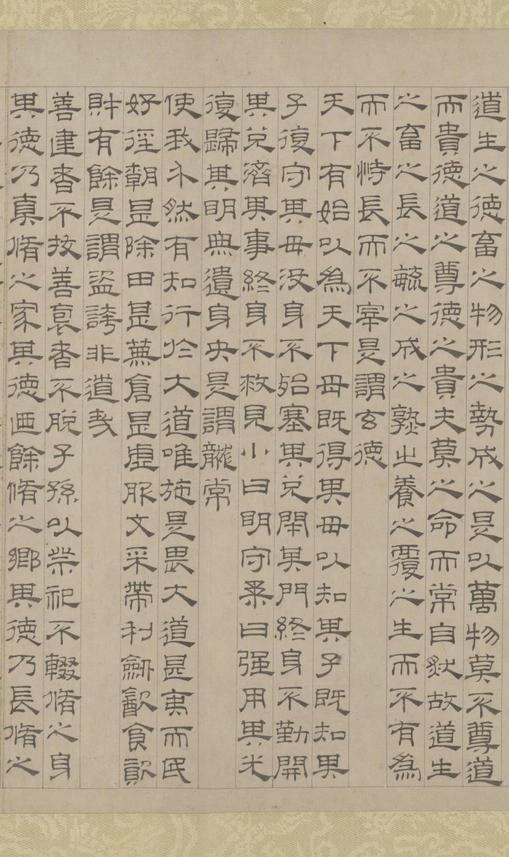 道生之德畜之物形之勢成之是以萬物莫不尊道
而貴德道之尊德之貴夫莫之命而常自然故道生
之畜之長之毓之成之熟之養之覆之生而不有為
而不恃長而不宰是謂玄德
天下有始以為天下母既得其母以知其子既知其
子復守其母没身不殆塞其兌閉其門終身不勤開
其兌濟其事終身不救見小曰明守柔曰强用其光
復歸其明無遺身央是謂襲常
使我介然有知行於大道唯施是畏大道甚夷而民
好徑朝甚除田甚蕪倉甚虛服文采帶利劒食飲
財有餘是謂盜誇非道哉
善建者不拔善裒者不脫子孫以祭祀不輟脩之身
其德乃真脩之家其德迺餘脩之鄉其德乃長脩之